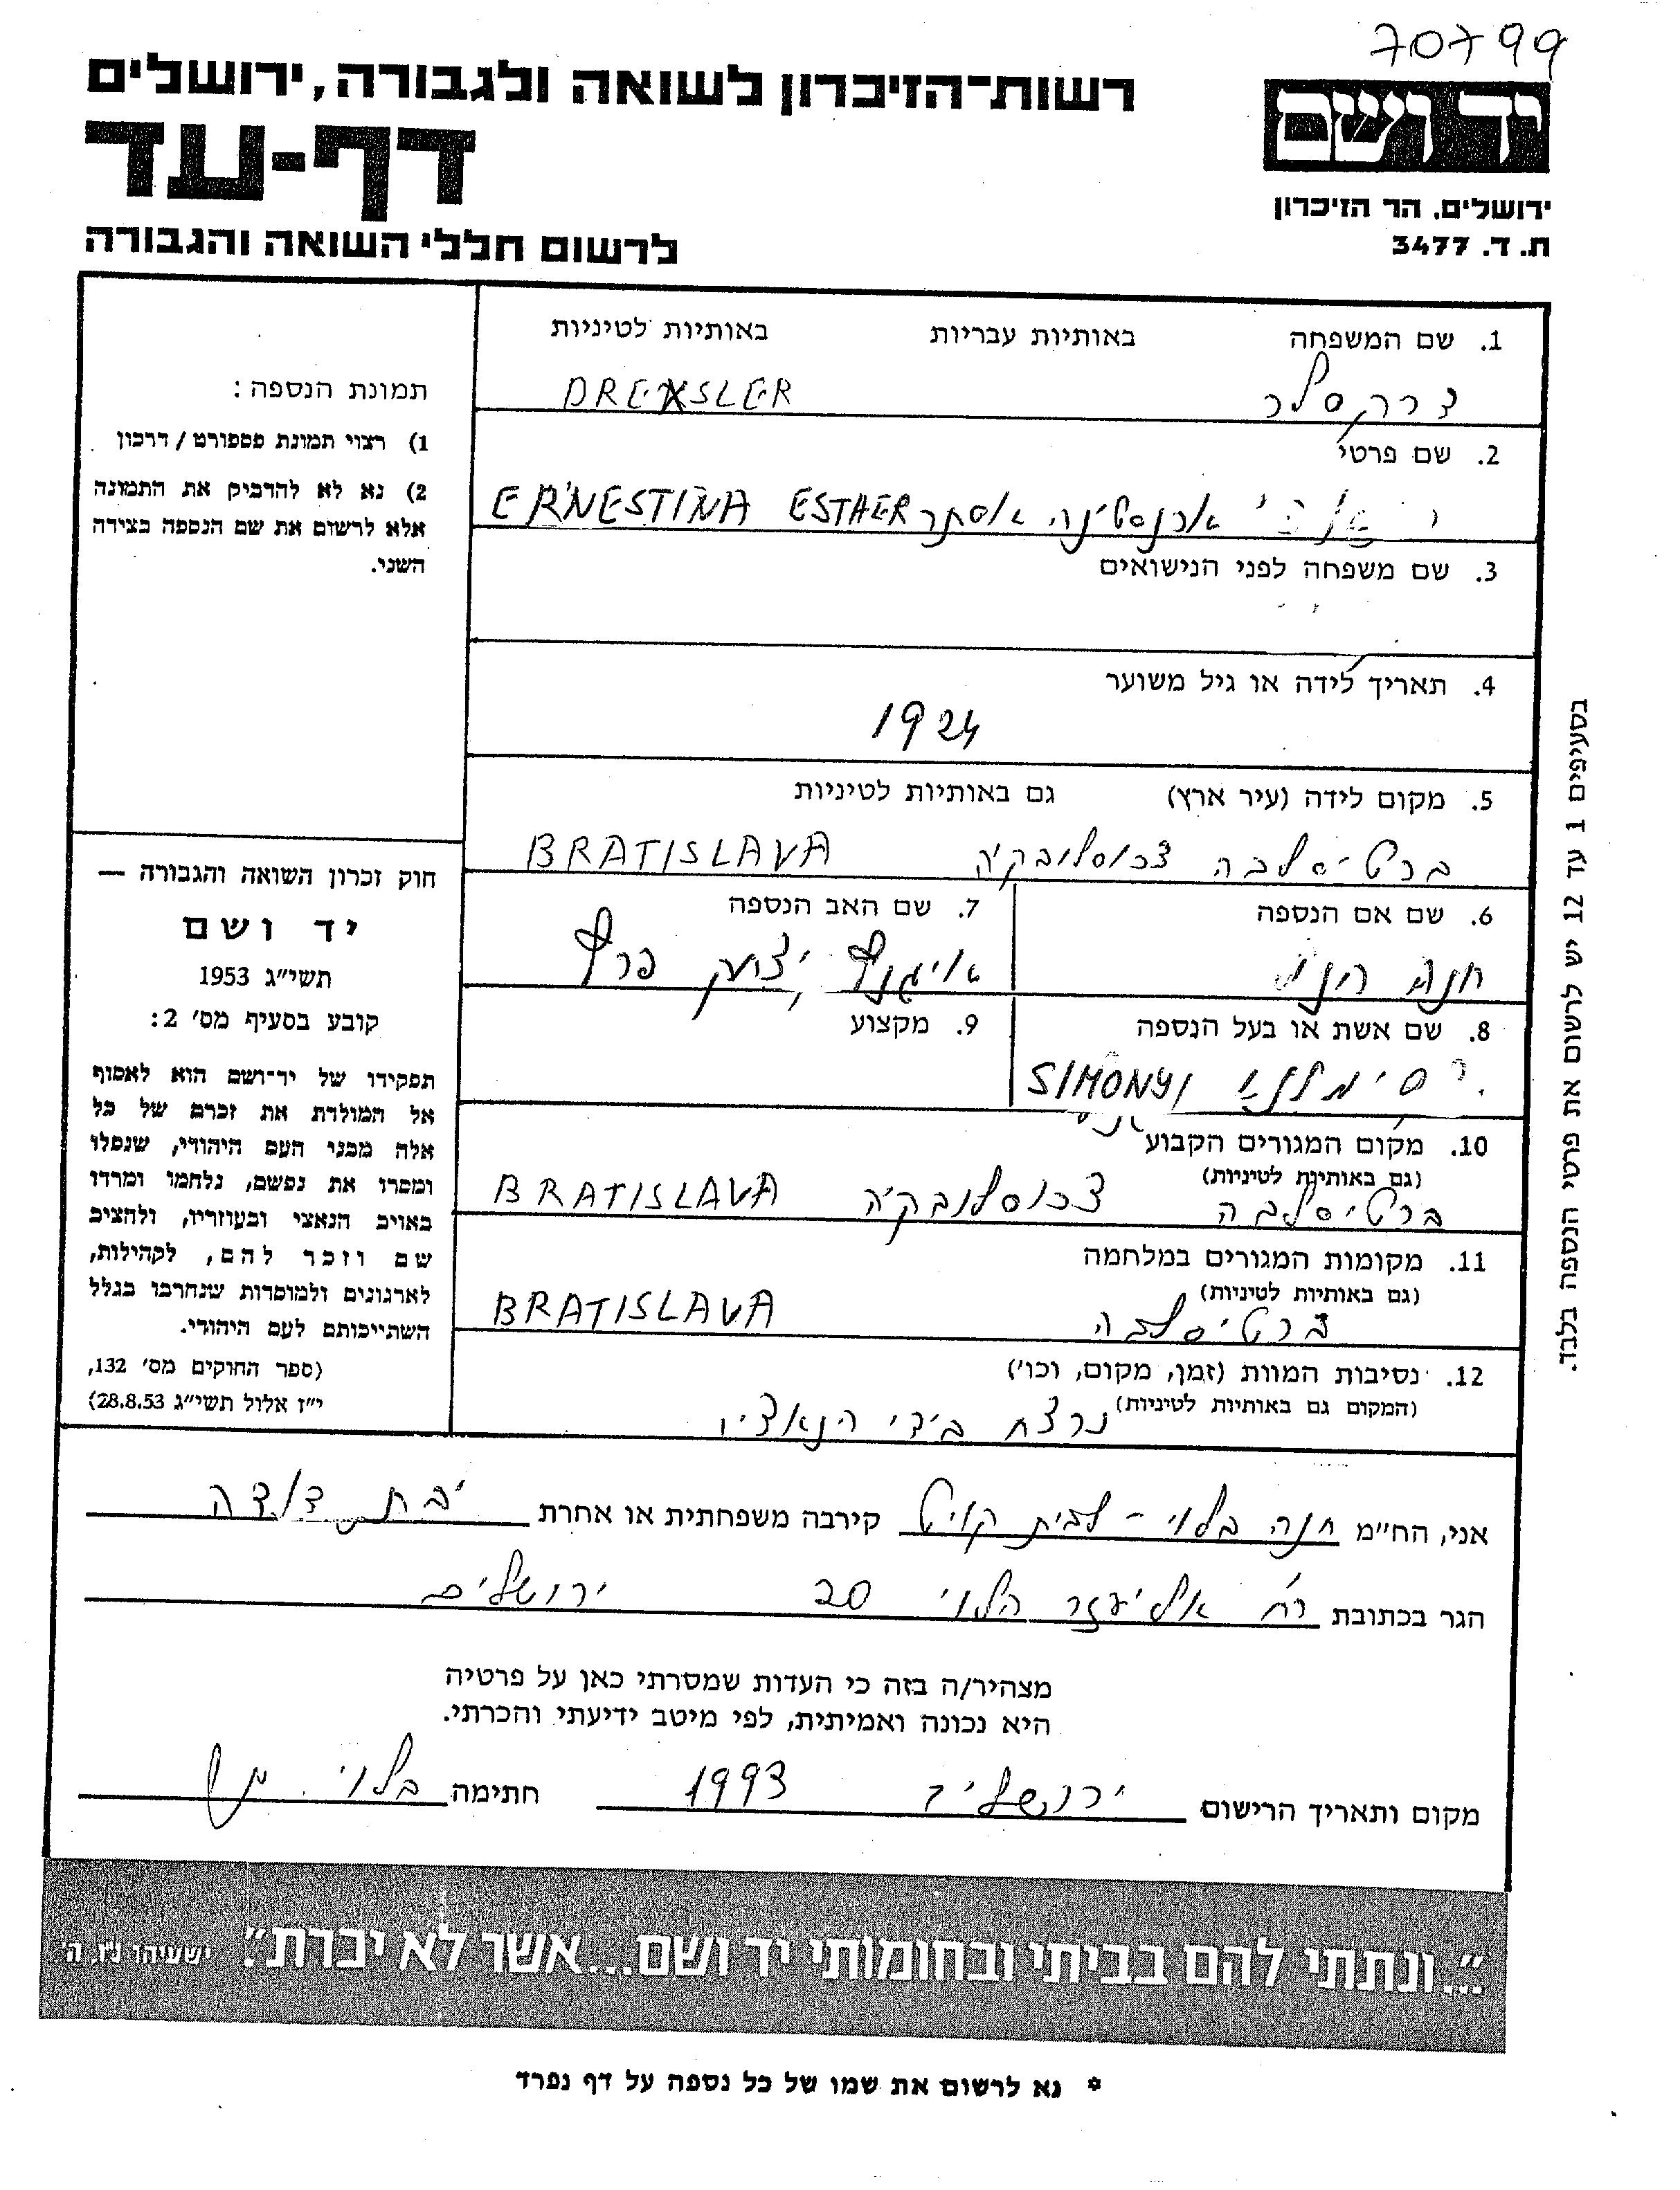 70799
יד ושם
רשות־הזיכרון לשואה ולגבורה, ירושלים
דף-עד
ירושלים, הר הזיכרון
ת. ד. 3477
לרשום חללי השואה והגבורה
1. שם המשפחה באותיות עבריות באותיות לטיניות
דרקסלר DREXSLER
2. שם פרטי
ארנסטינה אסתר ERNESTINA ESTHER
3. שם משפחה לפני הנישואים
4. תאריך לידה או גיל משוער
1924
5. מקום לידה (עיר ארץ) גם באותיות לטיניות
ברטיסלבה צכוסלובקיה BRATISLAVA
6. שם אם הנספה
חנה
7. שם האב הנספה
יצחק
8. שם אשת או בעל הנספה
SIMONYI
9. מקצוע
10. מקום המגורים הקבוע
(גם באותיות לטיניות)
ברטיסלבה צכוסלובקיה BRATISLAVA
11. מקומות המגורים במלחמה
(גם באותיות לטיניות)
ברטיסלבה BRATISLAVA
12. נסיבות המוות (זמן, מקום, וכו')
(המקום גם באותיות לטיניות)
נרצח בידי הנאצים
תמונת הנספה:
1) רצוי תמונת פספורט / דרכון
2) נא לא להדביק את התמונה
אלא לרשום את שם הנספה בצידה
השני.
חוק זכרון השואה והגבורה —
יד ושם
תשי״ג 1953
קובע בסעיף מס' 2:
תפקידו של יד־ושם הוא לאסוף
אל המולדת את זכרם של כל
אלה מבני העם היהודי, שנפלו
ומסרו את נפשם, נלחמו ומרדו
באויב הנאצי ובעוזריו, ולהציב
שם וזכר להם, לקהילות,
לארגונים ולמוסדות שנחרבו בגלל
השתייכותם לעם היהודי.
(ספר החוקים מס' 132,
י״ז אלול תשי״ג 28.8.53)
בסעיפים 1 עד 12 יש לרשום את פרטי הנספה בלבד.
אני, הח״מ חנה בלוי - לבית קירבה משפחתית או אחרת בת דודה
הגר בכתובת רח' אליעזר הלוי 20 ירושלים
מצהיר/ה בזה כי העדות שמסרתי כאן על פרטיה
היא נכונה ואמיתית, לפי מיטב ידיעתי והכרתי.
מקום ותאריך הרישום ירושלים 1993 חתימה בלוי
״...ונתתי להם בביתי ובחומותי יד ושם...אשר לא יכרת״. ישעיהו נ״ו, ה'
* נא לרשום את שמו של כל נספה על דף נפרד